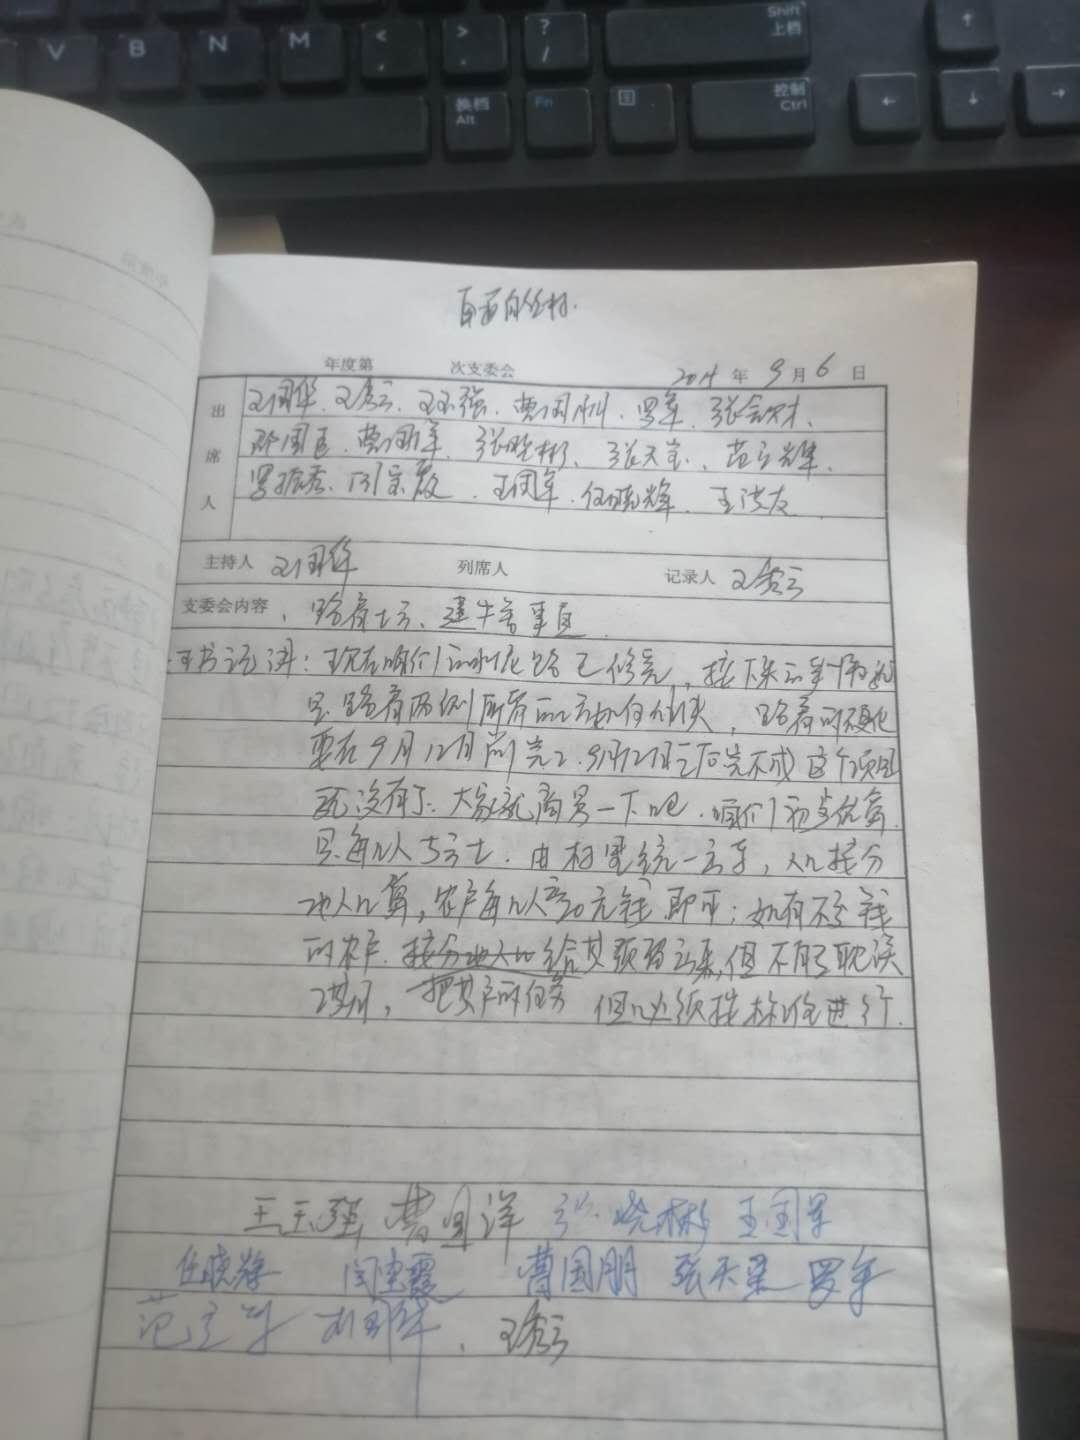 Shift 上档
V B N M < , > . ? /
换档 Alt Fn 控制 Ctrl
← ↓ → ↑
年度第 次支委会 2014 年 9 月 6 日
出席人
刘国华、王秀云、王玉强、曹国朋、罗军、张会才、
曹国军、张晓彬、张天宝、范立辉、
王国军、任晓辉、王洪友
主持人 刘国华 列席人 记录人 王秀云
支委会内容、路肩土方、建牛舍事宜
书记讲：现在咱们的水泥路已修完，接下来的事
是路肩两侧所需的土方如何解决，路肩硬化
要在9月12日前完工，9月12日之后完不成这个项目
就没有了，大家就商量一下吧，咱们初步估算
只每人 方土，由村里统一 车，人口按分
地人口算，农户每口人 元钱即可；如有不交钱
的农户，按分地人口给其预留 来，但不能耽误
工期，把其户的任务 但必须按标准进行
王玉强 曹国洋 张晓彬 王国军
任晓辉 闫宝霞 曹国朋 张天宝 罗军
范立 刘国华、王秀云